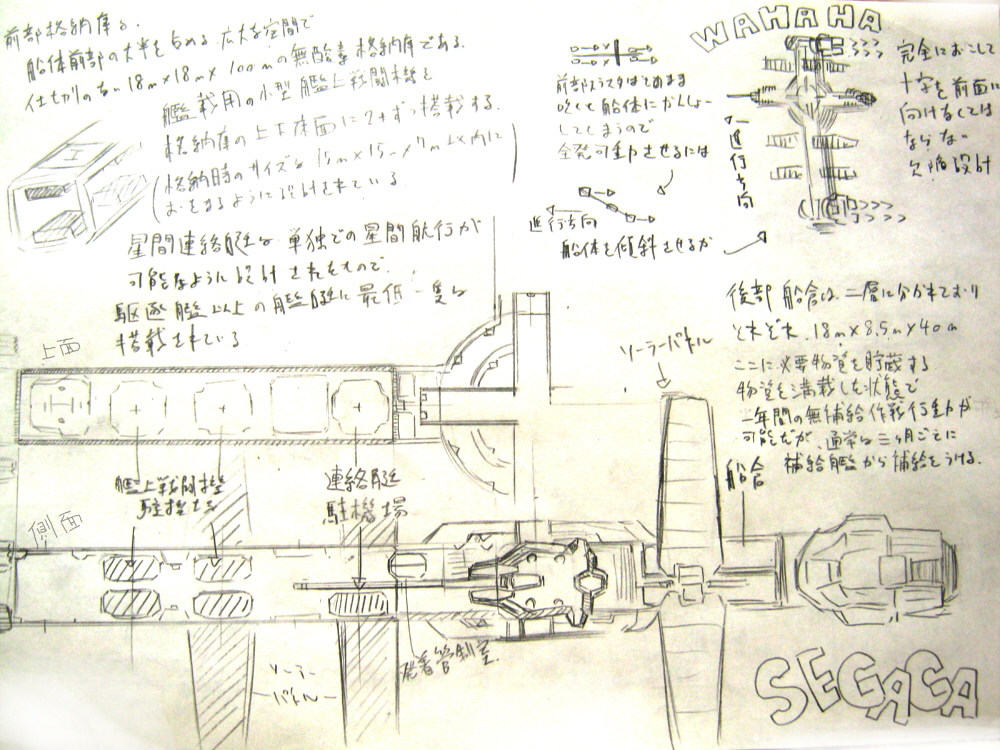 前部格納庫は
船体前部の大半を占める 広大な空間で
仕切りのない18m×18m×100mの無酸素格納庫である。
艦載用の小型艦上戦闘機を
格納庫の上下床面に2キずつ搭載する。
(格納時のサイズは15m×15m×7m以内に
おさまるように設計されている)
星間連絡艇は単独での星間航行が
可能なように設計されたもので、
駆逐艦以上の艦艇に最低一隻は
搭載されている
WAHAHA
前部スラスタはそのまま
吹くと船体にかんしょー
してしまうので
全発可動させるには
進行方向
船体を傾斜させるか
進行方向
完全におこして
十字を前面に
向けなくては
ならない
欠陥設計
後部船倉は、二層に分かれており
それぞれ、18m×8.5m×40m
ここに必要物資を貯蔵する
物資を満載した状態で
二年間の無補給作戦行動が
可能だが、通常は三ヶ月ごとに
補給艦から補給をうける。
上面
ソーラーパネル
船倉
艦上戦闘機
駐機場
連絡艇
駐機場
側面
発着管制室
ソーラー
パネル
SEGAGA